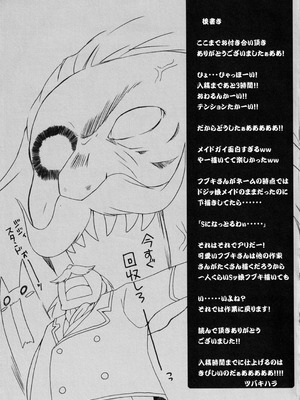 後書き
ここまでお付き合い頂き
ありがとうございましたぁああ!
ひょ・・・ひゃっほーい!
入稿まであと3時間!!
おわるんかーい!!
テンションたかーい!!
だからどうしたぁああああああ!!
メイドガイ面白すぎるww
やー描いてて楽しかったww
フブキさんがネームの時点では
ドジッ娘メイドのままだったのに
下描きしてたら・・・・・・
「Sになっとるわぃ・・・・・」
それはそれでアリだー!
可愛いフブキさんは他の作家
さんがたくさん描くだろうから
一人くらいSッ娘フブキ描いても
い・・・・・いいよね?
それでは作業に戻ります!
読んで頂きありがとう
ございました!!
入稿時間までに仕上げるのは
きびしいのだぁああああ!!!!
ツバキハラ
今すぐ
回収しろ